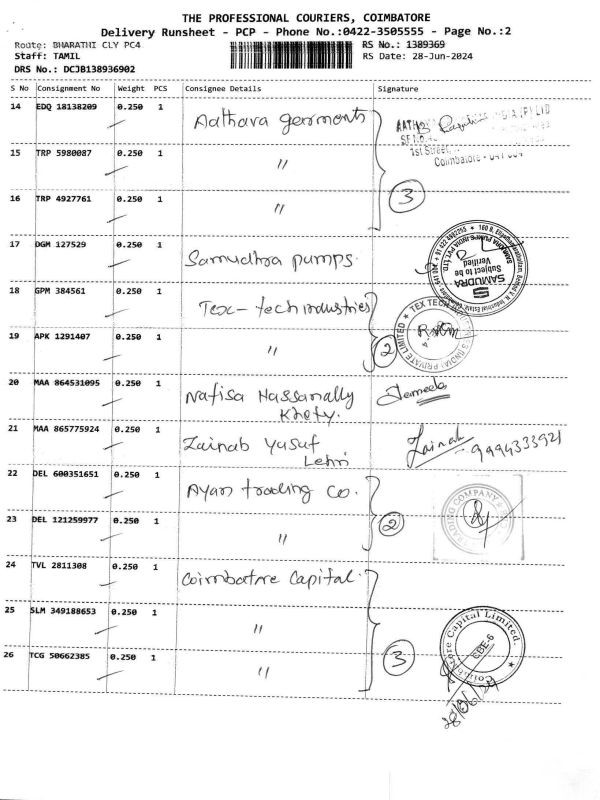 THE PROFESSIONAL COURIERS, COIMBATORE
Delivery Runsheet - PCP - Phone No.:0422-3505555 - Page No.:2
Route: BHARATHI CLY PC4 RS No.: 1389369
Staff: TAMIL RS Date: 28-Jun-2024
DRS No.: DCJB138936902
S No Consignment No Weight PCS Consignee Details Signature
14 EDQ 18138209 0.250 1 Aathava garments
15 TRP 5980087 0.250 1 "
1st Street,
Coimbatore - 641 004
16 TRP 4927761 0.250 1 " 3
17 DGM 127529 0.250 1 Samudhra pumps.
SAMUDRA
Subject to be
Verified
18 GPM 384561 0.250 1 Tex-tech industries
TEX TECH INDUSTRIES (INDIA) PRIVATE LIMITED
19 APK 1291407 0.250 1 " 2
20 MAA 864531095 0.250 1 Nafisa Hassanally
Khety. Jameela
21 MAA 865775924 0.250 1 Zainab Yusuf
Lehri Zainab - 9994333921
22 DEL 600351651 0.250 1 Ayan trading co.
TRADING COMPANY
23 DEL 121259977 0.250 1 " 2
24 TVL 2811308 0.250 1 Coimbatore Capital.
25 SLM 349188653 0.250 1 "
Coimbatore Capital Limited.
CBE-6
26 TCG 50662385 0.250 1 " 3
28/06/24